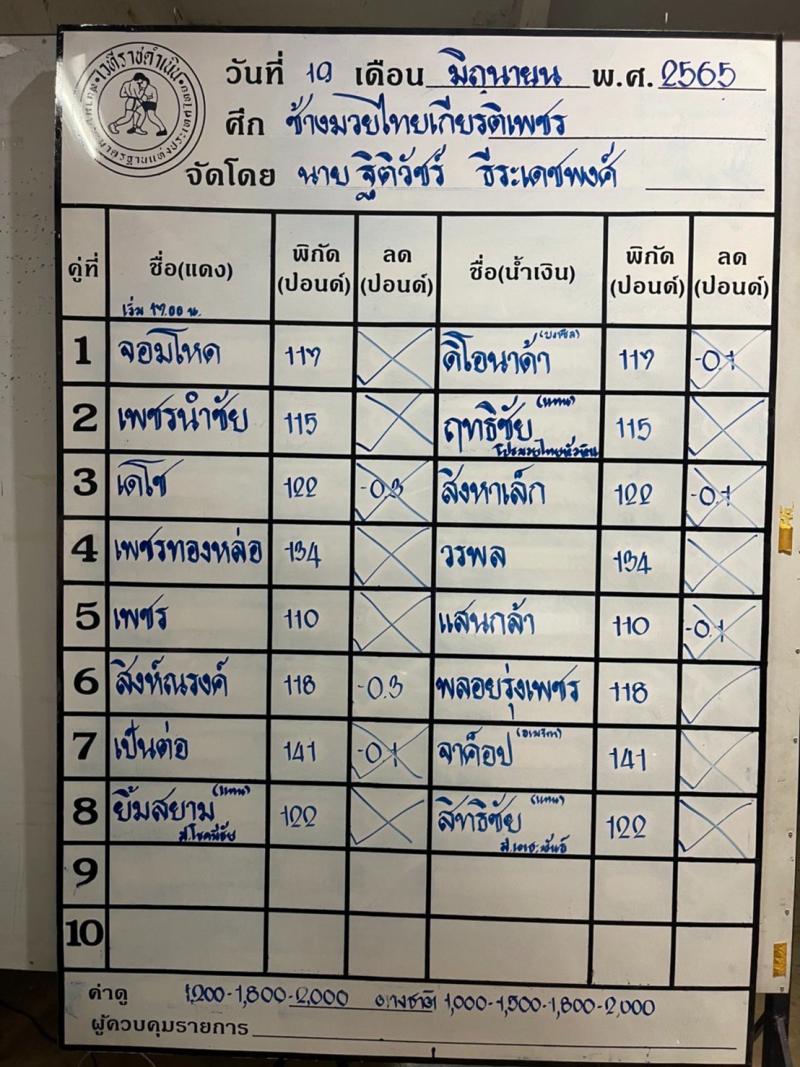 เวทีราชดำเนิน
วันที่ 19 เดือน มิถุนายน พ.ศ. 2565
ศึก ช้างมวยไทยเกียรติเพชร
จัดโดย นาย ฐิติวัชร์ ธีระเดชพงศ์
คู่ที่ ชื่อ(แดง) พิกัด (ปอนด์) ลด (ปอนด์) ชื่อ(น้ำเงิน) พิกัด (ปอนด์) ลด (ปอนด์)
เริ่ม 17.00 น.
1 จอมโหด 117 ดิโอนาด้า (บราซิล) 117 -0.1
2 เพชรนำชัย 115 ฤทธิชัย (แทน) 115
3 เดโช 122 -0.3 สิงหาเล็ก 122 -0.1
4 เพชรทองหล่อ 134 วรพล 134
5 เพชร 110 แสนกล้า 110 -0.1
6 สิงห์ณรงค์ 118 -0.3 พลอยรุ่งเพชร 118
7 เป็นต่อ 141 -0.1 จาค็อป 141
8 ยิ้มสยาม (แทน) 122 สิทธิชัย (แทน) 122
ส.โชคมีชัย
9
10
ค่าดู 1,200-1,800-2,000 ต่างชาติ 1,000-1,500-1,800-2,000
ผู้ควบคุมรายการ